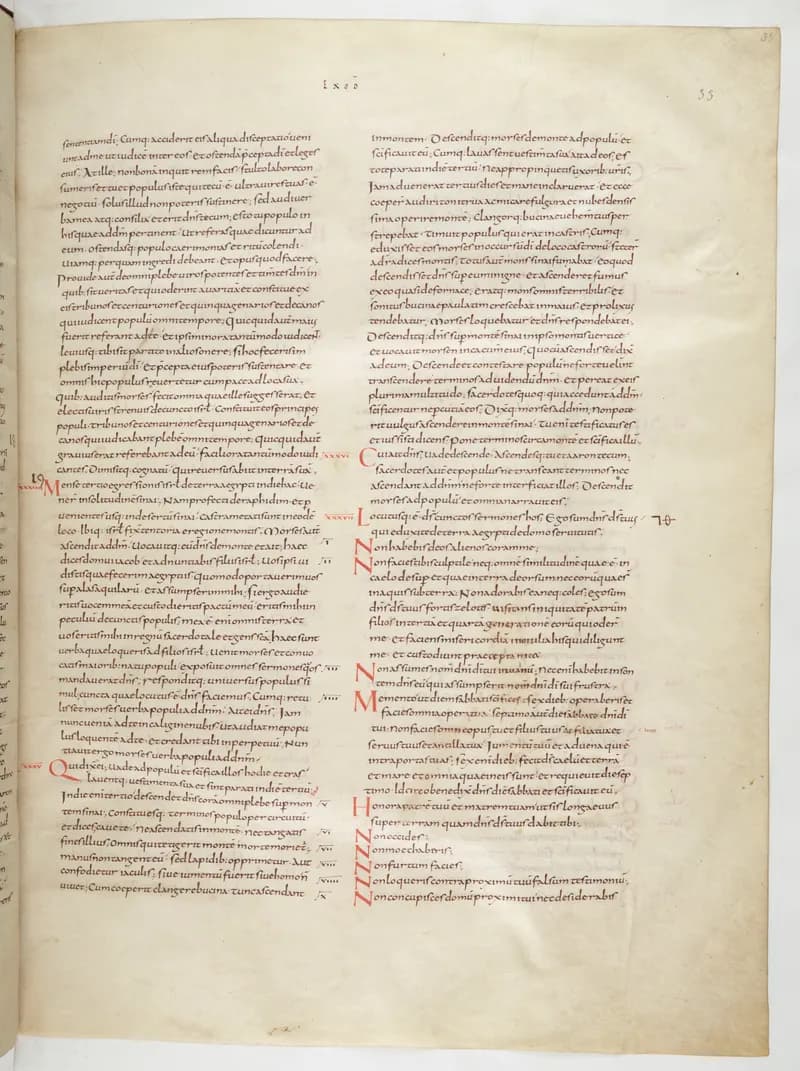 EXOD
35
sententiam di; Cumq; acciderit eis aliqua disceptatio ueni
unt ad me ut iudice inter eos et ostenda p̄cepta di et leges
eius; At ille; non bona inquit rem facis; stulto labore con
sumeris et tu et populus iste qui tecū ē; ultra uires tuas ē
negotiū; solus illud non poteris sustinere; sed audi uer
ba mea atq; consilia et erit d̄s tecum; esto tu populo in
his quae ad dm̄ pertinent; ut referas quae dicuntur ad
eum; ostendasq; populo caerimonias et ritū colendi;
uiamq; per quam ingredi debeant; et opus quod facere;
Prouide autē de omni plebe uiros potentes et timētes dm̄ in
quib; sit ueritas et qui oderint auaritiā et constitue ex
eis tribunos et centuriones et quinquagenarios et decanos
qui iudicent populū omni tempore; Quicquid autē maius
fuerit referant ad te; Et ipsi minora tantūmodo iudicent
leuiusq; tibi sit partito in alios onere; si hoc feceris im
plebis imperiū di; Et p̄cepta eius poteris sustentare; Et
omnis hic populus reuertetur cum pace ad loca sua;
Quib; auditis moyses fecit omnia quae ille suggesserat; Et
electis uiris strenuis de cuncto isrl; Constituit eos principes
populi; tribunos et centuriones et quinquagenarios et de
canos qui iudicabant plebē omni tempore; Quicquid autē
grauius erat referebant ad eū; faciliora tantūmodo iudi
cantes; Dimisitq; cognatū; qui reuersus abiit in terrā suā;
Mense tertio egressionis isrl de terra aegypti in die hac ue
nerunt in solitudinē sinai; Nam profecti de raphidim et p
uenientes usq; in desertū sinai; Castrametati sunt in eodē
loco; Ibiq; isrl fixit tentoria e regione montis; Moyses autē
ascendit ad dm̄; Uocauitq; eū dn̄s de monte et ait; haec
dices domui iacob et adnuntiabis filiis isrl; Uos ipsi ui
distis quae fecerim aegyptiis quomodo portauerim uos
sup alas aquilarū et assumpserim mihi; si ergo audie
ritis uocem meā et custodieritis pactū meū; eritis mihi in
peculiū de cunctis populis; mea ē enim omnis terra et
uos eritis mihi in regnū sacerdotale et gens scā; haec sunt
uerba quae loqueris ad filios isrl; Uenit moyses et conuo
catis maiorib; natu populi exposuit omnes sermones quos
mandauerat dn̄s; responditq; uniuersus populus si
mul; cuncta quae locutus ē dn̄s faciemus; Cumq; retu
lisset moyses uerba populi ad dn̄m; Ait ei dn̄s; Iam
nunc ueniā ad te in caligine nubis; ut audiat me popu
lus loquentē ad te; et credant tibi in perpetuū; Nun
tiauit ergo moyses uerba populi ad dn̄m;
Qui dixit ei; uade ad populū et scifica illos hodie et cras
Lauentq; uestimenta sua et sint parati in diē tertiū;
In die enim tertio descendet dn̄s corā omni plebe sup mon
tem sinai; Constituesq; terminos populo per circuitū;
et dices; cauete; Ne ascendatis in monte; nec tangatis
fines illius; Omnis qui tetigerit monte morte morietur;
manus non tanget eū; sed lapidib; opprimetur; Aut
confodietur iaculis; siue iumentū fuerit siue homo n̄
uiuet; Cum coeperit clangere bucina; tunc ascendant
in montem; Descenditq; moyses de monte ad populū et
scificauit eū; Cumq; lauassent uestimta sua; ait ad eos; Es
tote parati in diē tertiū; Ne appropinquetis uxoribus uris;
Iam aduenerat tertius dies et mane inclaruerat; et ecce
coeper audiri tonitrua ac micare fulgura et nubes densis
sima operire monte; Clangorq; bucinae uehemtius per
strepebat; Timuit populus qui erat in castris; Cumq;
eduxisset eos moyses in occursū di de loco castrorū; steter
ad radices montis; Totus autē mons sinai fumabat; Eo quod
descendisset dn̄s sup eum in igne; et ascenderet fumus
ex eo quasi de fornace; eratq; mons omnis terribilis; et
sonitus bucinae paulatim crescebat in maius; et prolixius
tendebatur; Moyses loquebatur et dn̄s respondebat ei;
Descenditq; dn̄s sup montē sinai in ipso montis uertice
et uocauit moysen in cacumē eius; Quo cū ascendisset dix̄
ad eum; Descende et contestare populū; ne forte uelint
transcendere terminos ad uidendū dn̄m; et pereat ex eis
plurima multitudo; sacerdotes quoq; qui accedunt ad dm̄
scificentur; ne pcutiat eos; Dix̄q; moyses ad dn̄m; Non pote
rit uulgus ascendere in monte sinai; Tu enī testificatus es
et iussisti dicens; Pone terminos circa monte et scifica illū;
Cui ait dn̄s; Uade descende; Ascendesq; tu et aaron tecum;
sacerdotes autē et populus ne transeant terminos nec
ascendant ad dn̄m ne forte interficiat illos; Descendit
moyses ad populū et omnia narrauit eis;
Locutusq; ē dn̄s cunctos sermones hos; Ego sum dn̄s ds̄ tuus
qui eduxi te de terra aegypti de domo seruitutis;
Non habebis deos alienos coram me;
Non facies tibi sculptile neq; omnē similitudinē quae ē in
caelo desup et quae in terra deorsum nec eorū quae s
in aquis sub terra; Non adorabis ea neq; coles; Ego sum
dn̄s ds̄ tuus fortis zelotes; uisitans iniquitatē patrum
filios in tertiā et quartā generatione eorū qui oder
me; et faciens misericordiā in milia his qui diligunt
me et custodiunt praecepta mea;
Non assumes nom̄ dn̄i di tui in uanū; Nec enī habebit inson
tem dn̄s eū qui assumpserit nom̄ dn̄i di sui frustra;
Memento ut diem sabbati scifices; sex dieb; operaberis et
facies omnia opera tua; septimo autē die sabbatū dn̄i di
tui; non facies omne opus tu et filius tuus et filia tua et
seruus tuus et ancilla tua; Iumentū tuū et aduena qui ē
intra portas tuas; sex enī dieb; fecit ds̄ caelū et terrā
et mare et omnia quae in eis sunt; et requieuit die sep
timo; Idcirco benedix̄ dn̄s diē sabbati et scificauit eū;
Honora patrē tuū et matrem tuam ut sis longaeuus
super terram quam dn̄s ds̄ tuus dabit tibi;
Non occides;
Non moechaberis;
Non furtum facies;
Non loqueris contra proximū tuū falsum testimoniū;
Non concupisces domū proximi tui nec desiderabis